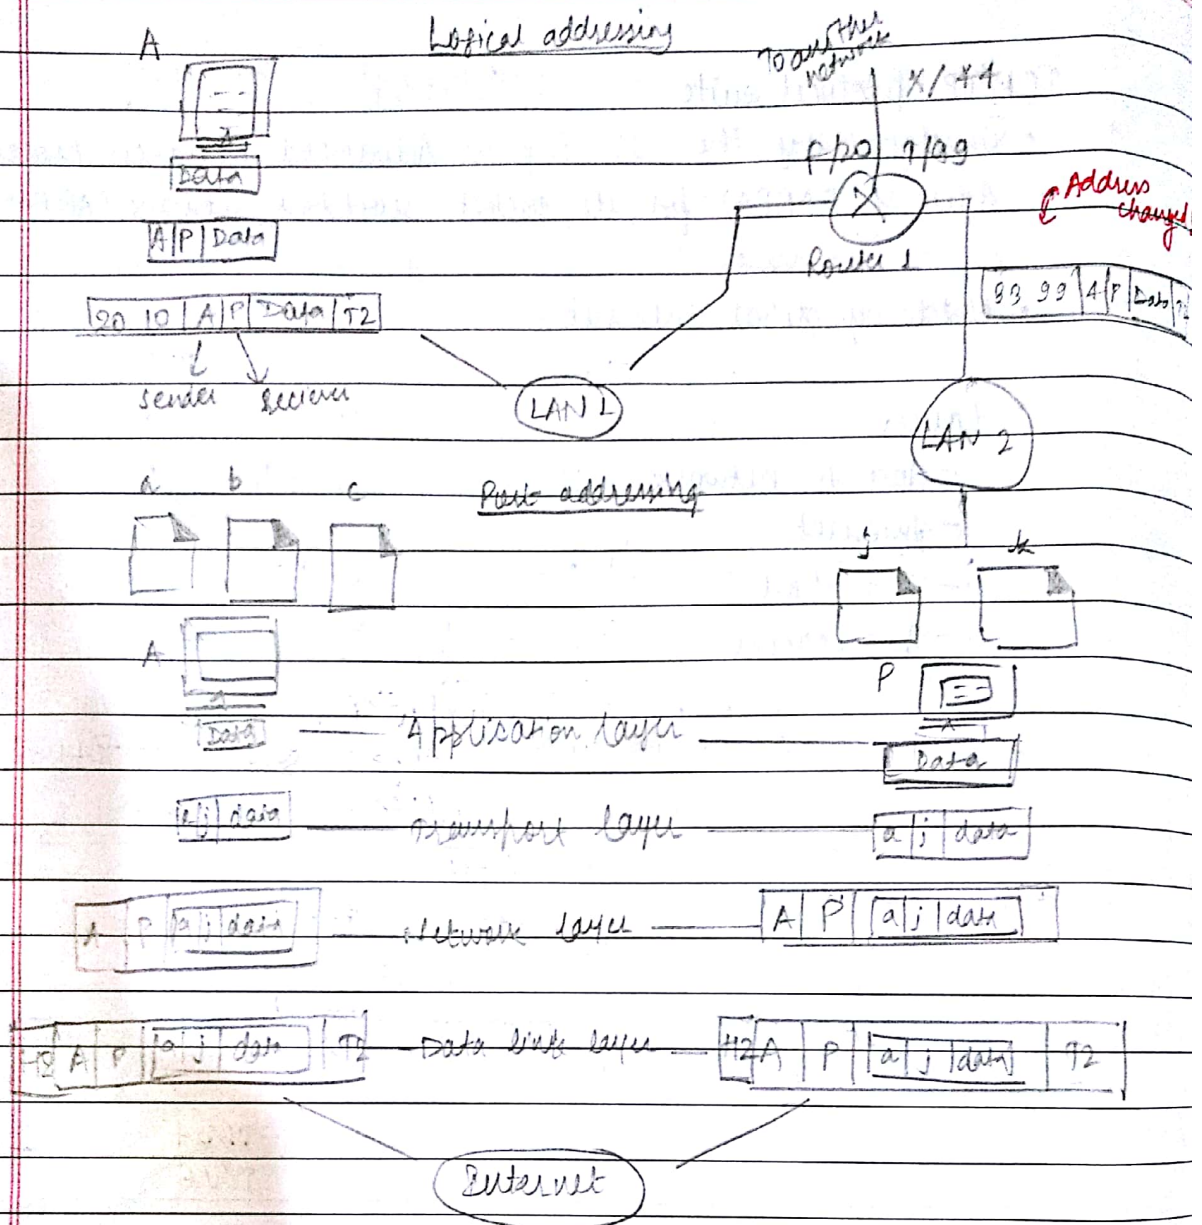 Logical addressing
A
To another
network
X/44
Data
F/20 T/99
Address
changed
A P Data
Router 1
93 99 A P Data
20 10 A P Data T2
Sender Reciever
LAN 1
LAN 2
a b c
Port addressing
j k
A
P
Data Application layer Data
a j data Transport layer a j data
A P a j data Network layer A P a j data
H2 A P a j data T2 Data link layer H2 A P a j data T2
Internet